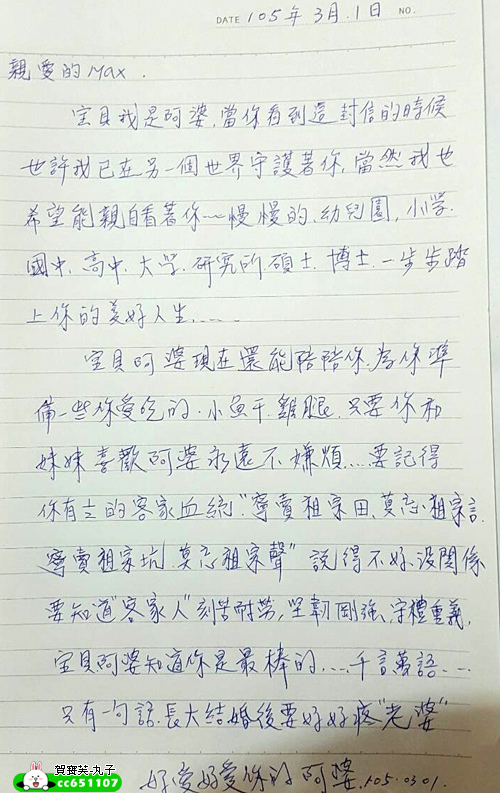 DATE 105年3月.1日 NO.
親愛的Max.
宝貝我是阿婆,當你看到這封信的時候
也許我已在另一個世界守護著你,當然我也
希望能親自看著你~慢慢的.幼兒園,小学.
國中.高中.大学.研究所.碩士.博士.一步步踏
上你的美好人生......
宝貝阿婆現在還能陪陪你.為你準
備一些你愛吃的.小魚干.雞腿.只要你和
妹妹喜歡阿婆永遠不嫌煩....要記得
你有的客家血統"寧賣祖宗田、莫忘.祖宗言.
寧賣祖宗坑.莫忘祖宗聲"說得不好.没關係
要知道"客家人"刻苦耐勞,坚韌剛強、守禮重義,
宝貝阿婆知道你是最棒的....千言萬語...
只有一句話.長大結婚後要好好疼"老婆"
好愛好愛你的阿婆.105.03.01.
賀寶芙-丸子
cc651107